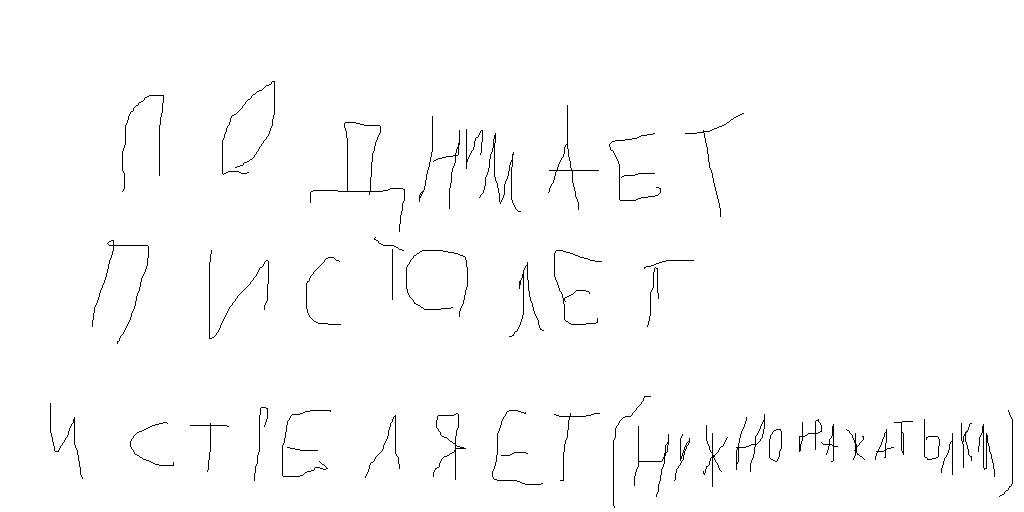 ПОДНИМАЕТ
ПИСТОЛЕТ
И СТРЕЛЯЕТ (НУЖНО НАЖАТЬ ЛКМ)